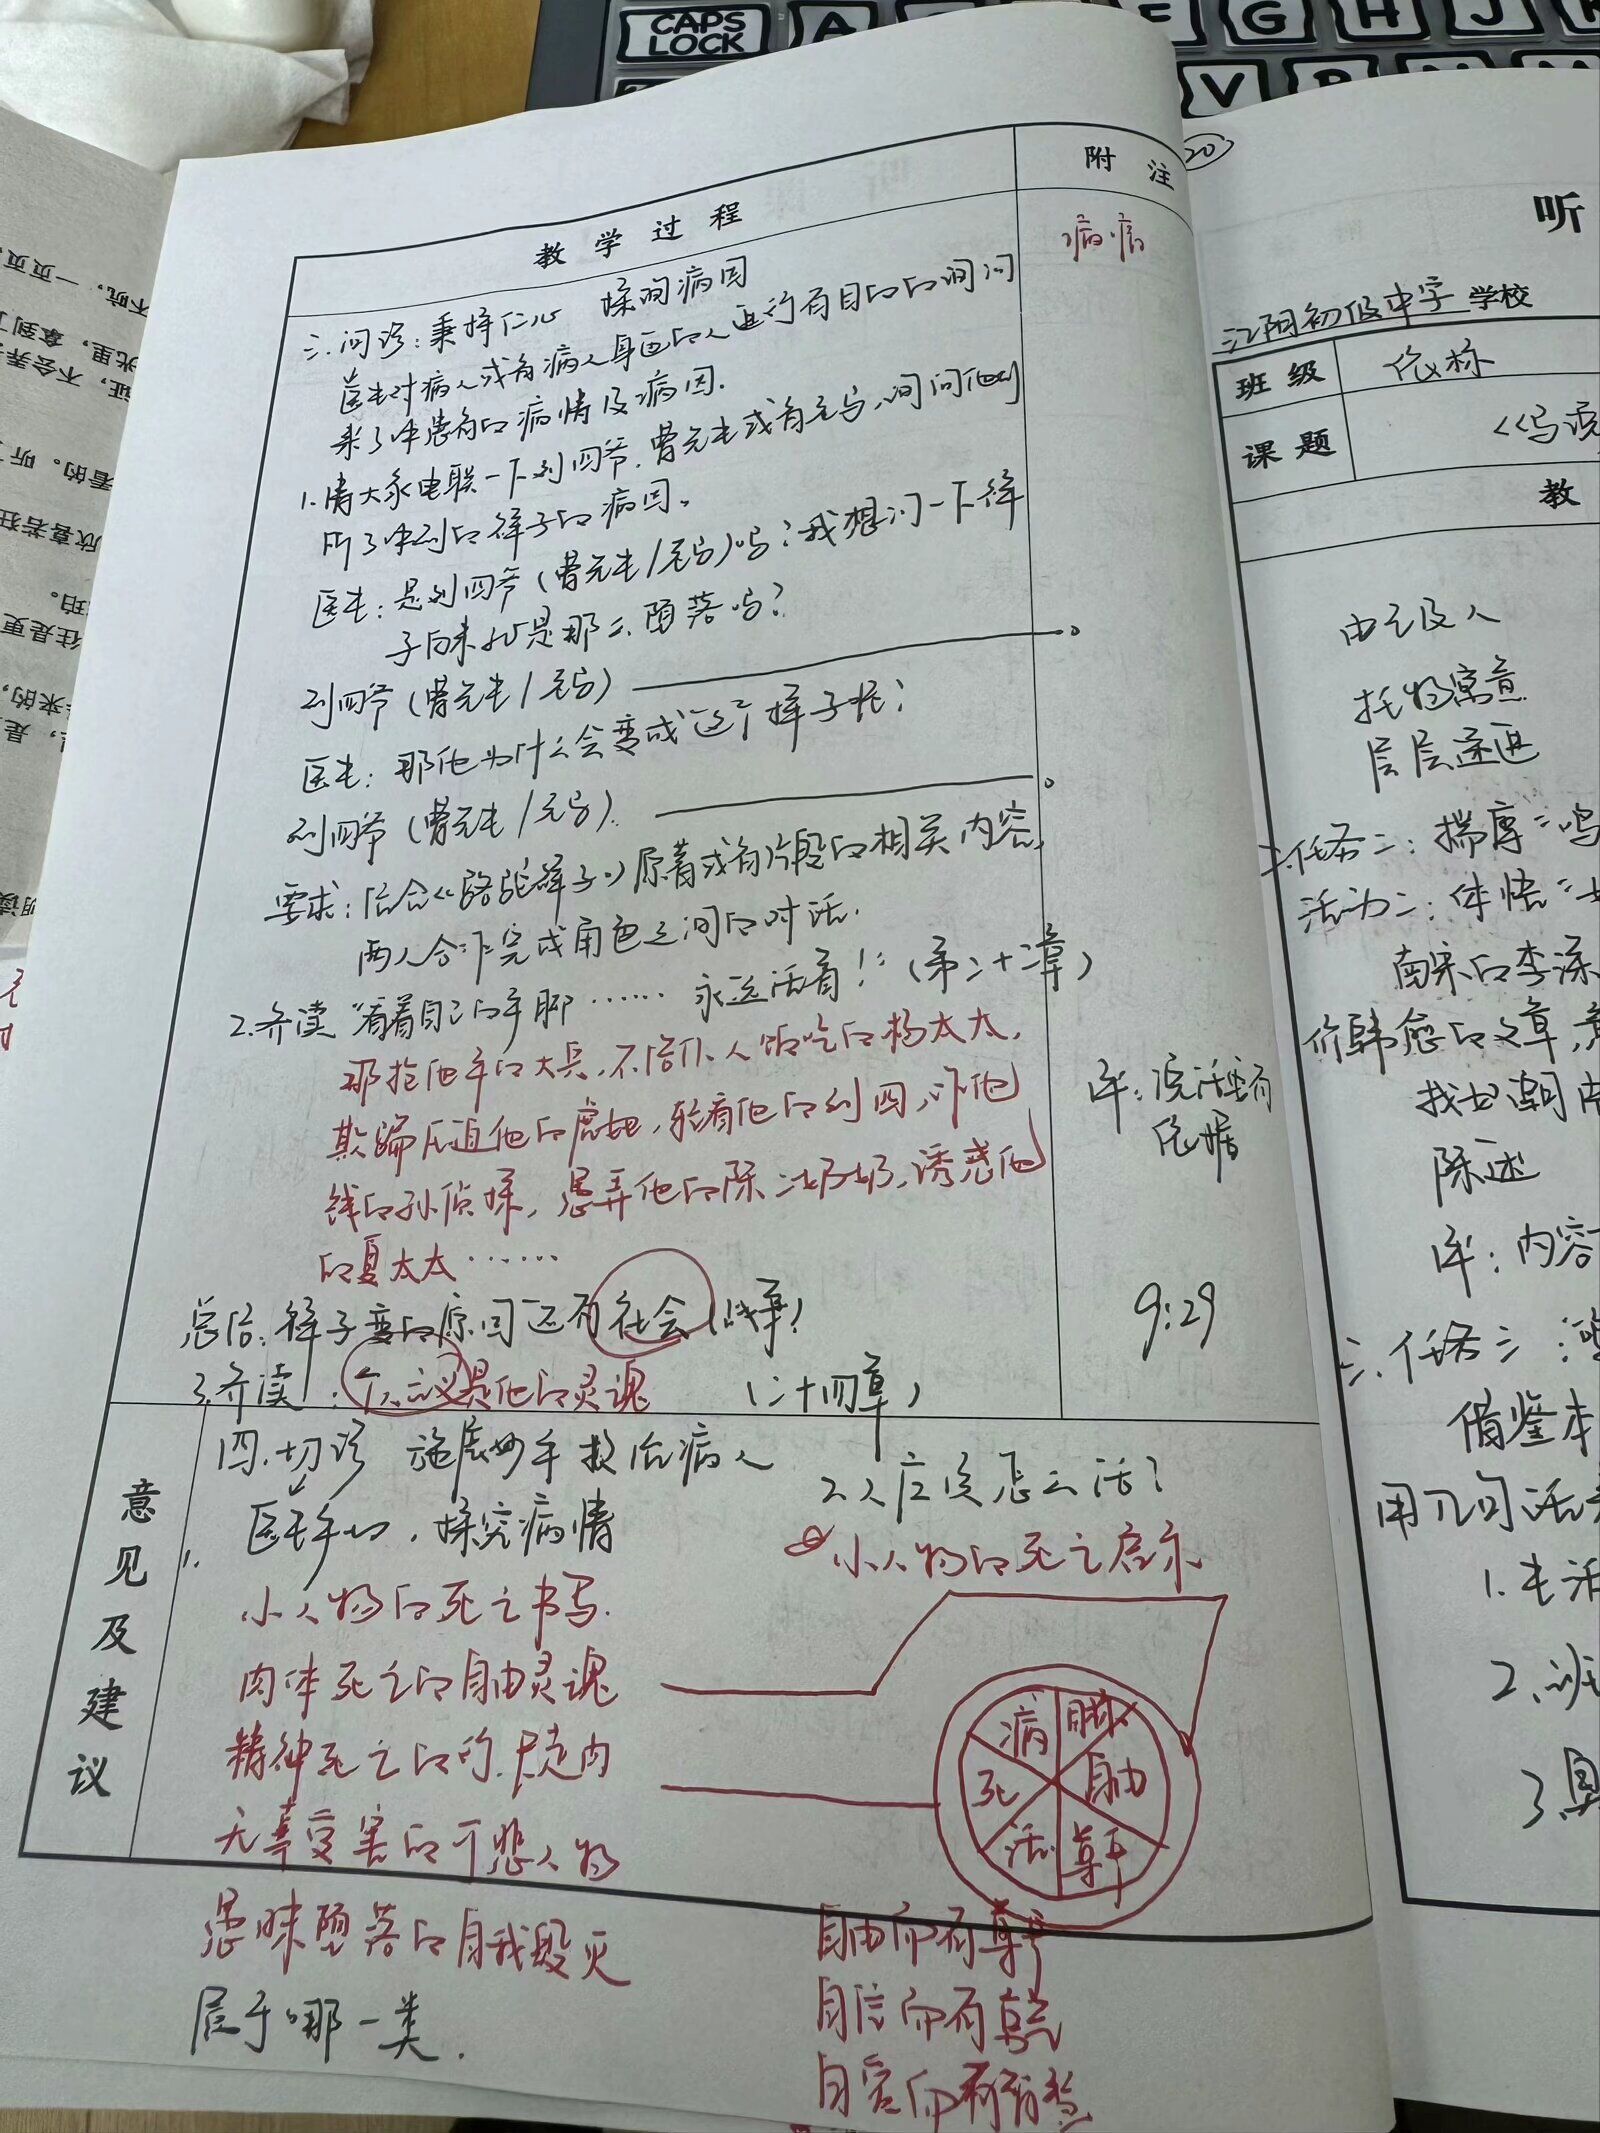 CAPS
LOCK
A
F
G
H
J
V
B
N
M
教学过程
附注
病情
三.问诊:秉持仁心 探询病因
医生对病人或者病人身边的人进行有目的的询问
来了解患者的病情及病因.
1.请大家电联一下刘四爷.曹先生或者老马,询问他们
所了解到的祥子的病因。
医生:是刘四爷(曹先生/老马)吗?我想问一下祥
子向来就是那么堕落吗?
刘四爷(曹先生/老马)
医生:那他为什么会变成这个样子呢?
刘四爷(曹先生/老马).
要求:结合《骆驼祥子》原著或者片段的相关内容,
两人合作完成角色之间的对话.
2.齐读“看着自己的手脚……永远活着!”(第二十二章)
那抢他车的大兵,不给仆人饭吃的杨太太,
欺骗压迫他的虎妞,轻看他的刘四,诈他
钱的孙侦探,愚弄他的陈二奶奶,诱惑他
的夏太太……
评:说话要有
依据
9:29
总结:祥子变的原因还有社会
3.齐读:个人主义是他的灵魂 (二十四章)
意见及建议
四.切诊 施展妙手救治病人
1.
医者仁心,探究病情
小人物的死亡书写.
肉体死亡的自由灵魂
精神死亡的的.行尸走肉
无辜受害的可悲人物
愚昧堕落的自我毁灭
属于哪一类.
2.人应该怎么活?
小人物的死亡启示
病
死
活
自由
尊严
自由而有尊严
自信而有
自爱而有
20
听
江阴初级中学学校
班级
课题
《马说
教
由毛及人
托物寓意
层层递进
二.任务二:揣摩“鸣
活动二:体悟“
南宋的李涂
价韩愈的文章,
找如潮
陈述
评:内容
三.任务三:
借鉴本
用几句话
1.生活
2.班
3.具